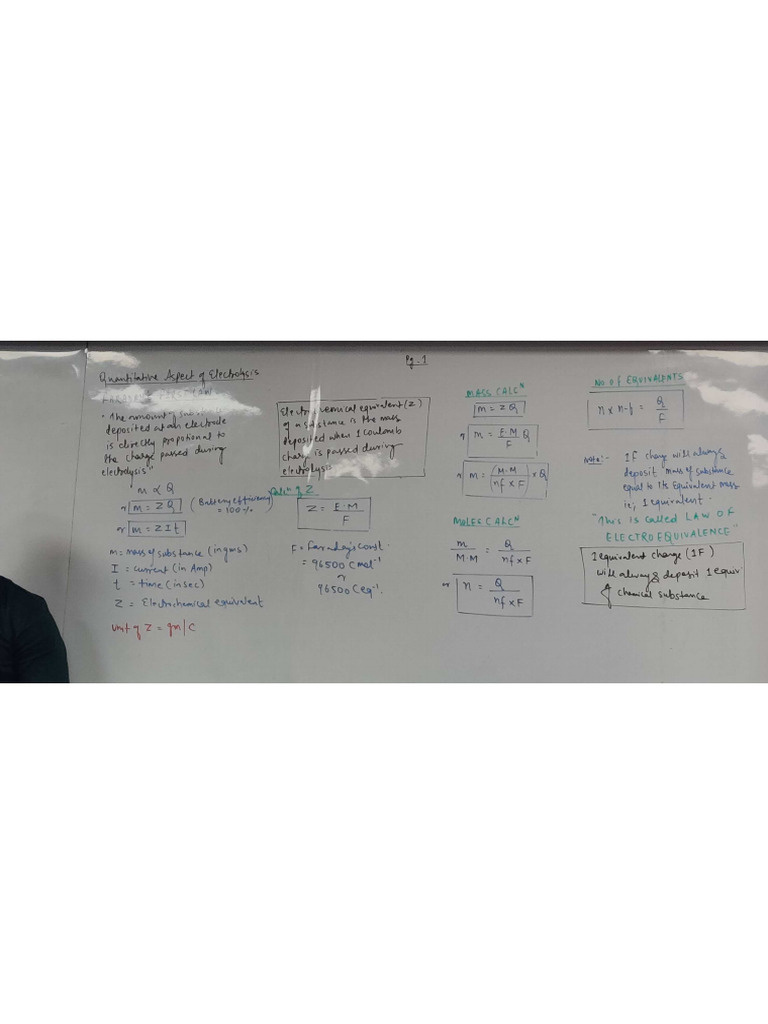 Pg. 1
Quantitative Aspect of Electrolysis
FARADAY'S FIRST LAW
"The amount of
deposited at an electrode
is directly propotional to
the charge passed during
electrolysis"
m ∝ Q
or m = ZQ (Battery efficiency = 100%)
or m = ZIt
m = mass of substance (in gms)
I = current (in Amp)
t = time (in sec)
Z = Electrochemical equivalent
Unit of Z = gm/C
Electrochemical equivalent (Z)
of a substance is the mass
deposited when 1 Coulomb
charge is passed during
electrolysis
of Z
Z = E.M / F
F = Faraday's const.
= 96500 C mol⁻¹
or
96500 C eq⁻¹.
MASS CALCᴺ
m = ZQ
or m = E.M / F Q
or m = (M.M / nf × F) × Q
MOLES CALCᴺ
m / M.M = Q / nf × F
or n = Q / nf × F
NO OF EQUIVALENTS
n × n-f = Q / F
Note:- 1F charge will always
deposit mass of substance
equal to its equivalent mass
ie; 1 equivalent.
"This is called LAW OF
ELECTROEQUIVALENCE"
1 equivalent charge (1F)
will always deposit 1 equiv
of chemical substance